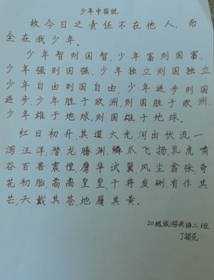 少年中国说
故今日之责任不在他人，而
全在我少年。
少年智则国智，少年富则国富，
少年强则国强，少年独立则国独立
少年自由则国自由，少年进步则国
进步，少年胜于欧洲，则国胜于欧洲，
少年雄于地球，则国雄于地球。
红日初升其道大光河出伏流一
泻汪洋潜龙腾渊鳞爪飞扬乳虎啸
谷百兽震惶鹰隼试翼风尘翕张奇
花初胎矞矞皇皇干将发硎有作其
芒天戴其苍地履其黄。
20级旅游英语二班